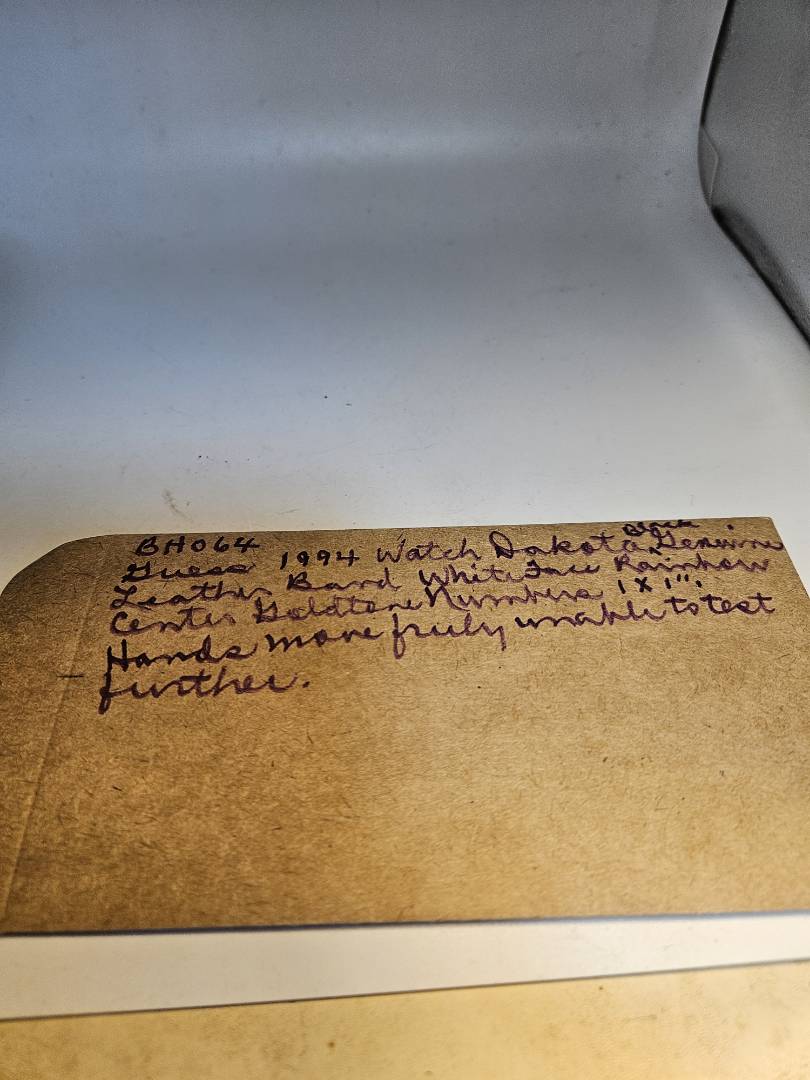 BH064
Guess 1994 Watch Dakota Black Genuine
Leather Band White Face Rainbow
Center Goldtone Numbers 1 x 1".
Hands move freely unable to test
further.